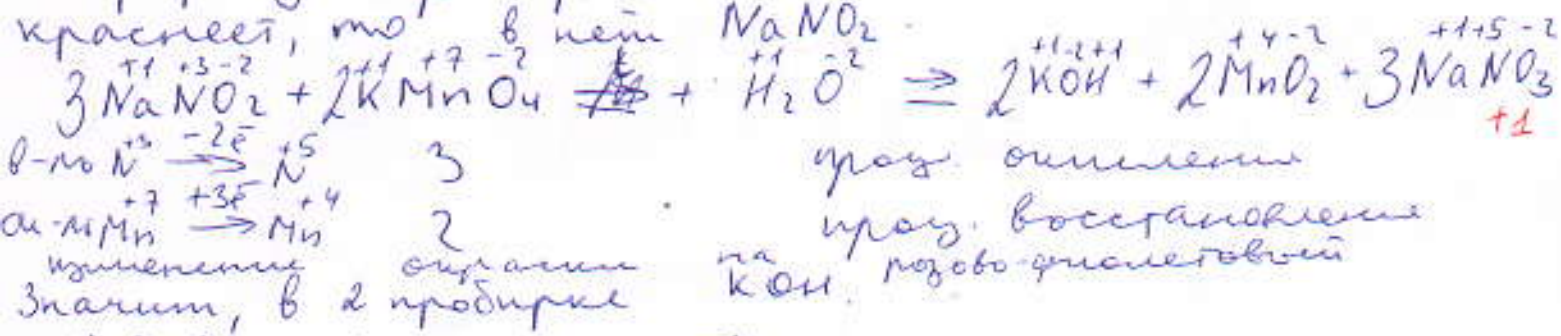 краснеет, то в нем NaNO₂.
3Na⁺¹N⁺³O₂⁻² + 2K⁺¹Mn⁺⁷O₄⁻² + H₂⁺¹O⁻² ⇒ 2K⁺¹O⁻²H⁺¹ + 2Mn⁺⁴O₂⁻² + 3Na⁺¹N⁺⁵O₃⁻²
+1
в-ль N⁺³ –2ē→ N⁺⁵ 3 проц. окисления
ок-ль Mn⁺⁷ +3ē→ Mn⁺⁴ 2 проц. восстановления
изменение окраски на розово-фиолетовый
Значит, в 2 пробирке KOH.